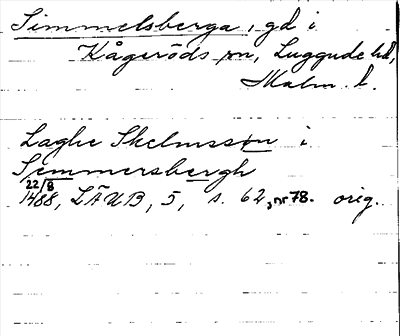 Simmelsberga, gd i
Kågeröds sn, Luggude hd,
Malm. l.
Laghe Skelmsson i
Semmersbergh
22/8
1488, LÄUB, 5, s. 62, nr 78. orig.